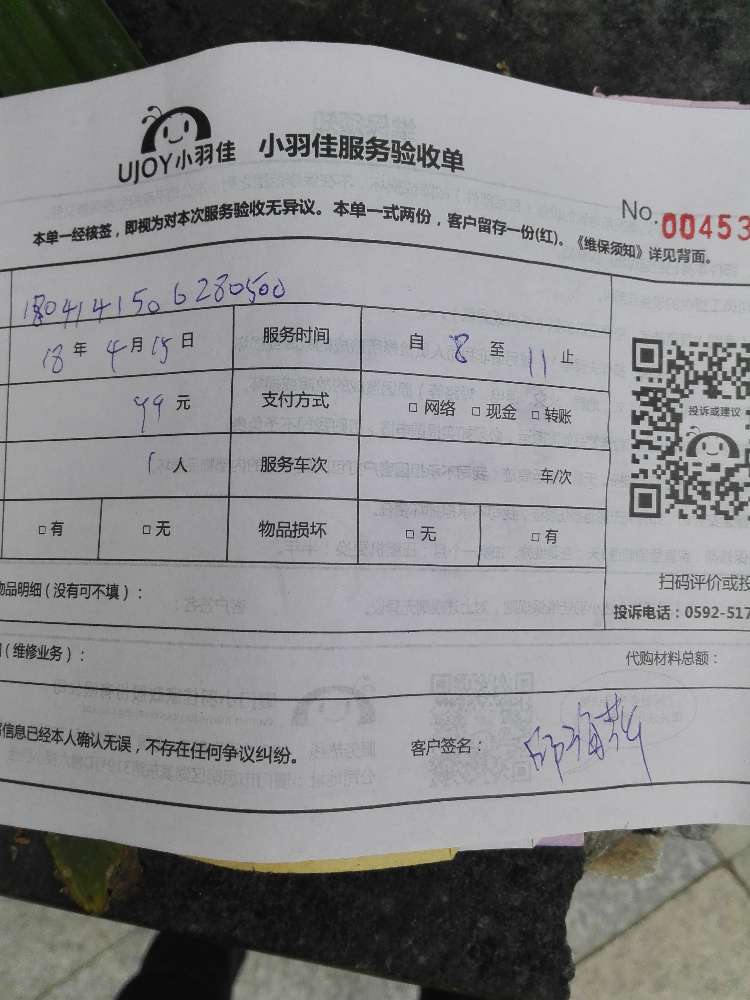 UJOY小羽佳 小羽佳服务验收单
No.00453
本单一经核签，即视为对本次服务验收无异议。本单一式两份，客户留存一份(红)。《维保须知》详见背面。
1804141506280500
18年4月15日 服务时间 自8至11止
99元 支付方式 □网络 □现金 □转账
投诉或建议
1人 服务车次 车/次
□有 □无 物品损坏 □无 □有
物品明细（没有可不填）：
扫码评价或投
投诉电话：0592-517
（维修业务）： 代购材料总额：
信息已经本人确认无误，不存在任何争议纠纷。 客户签名：